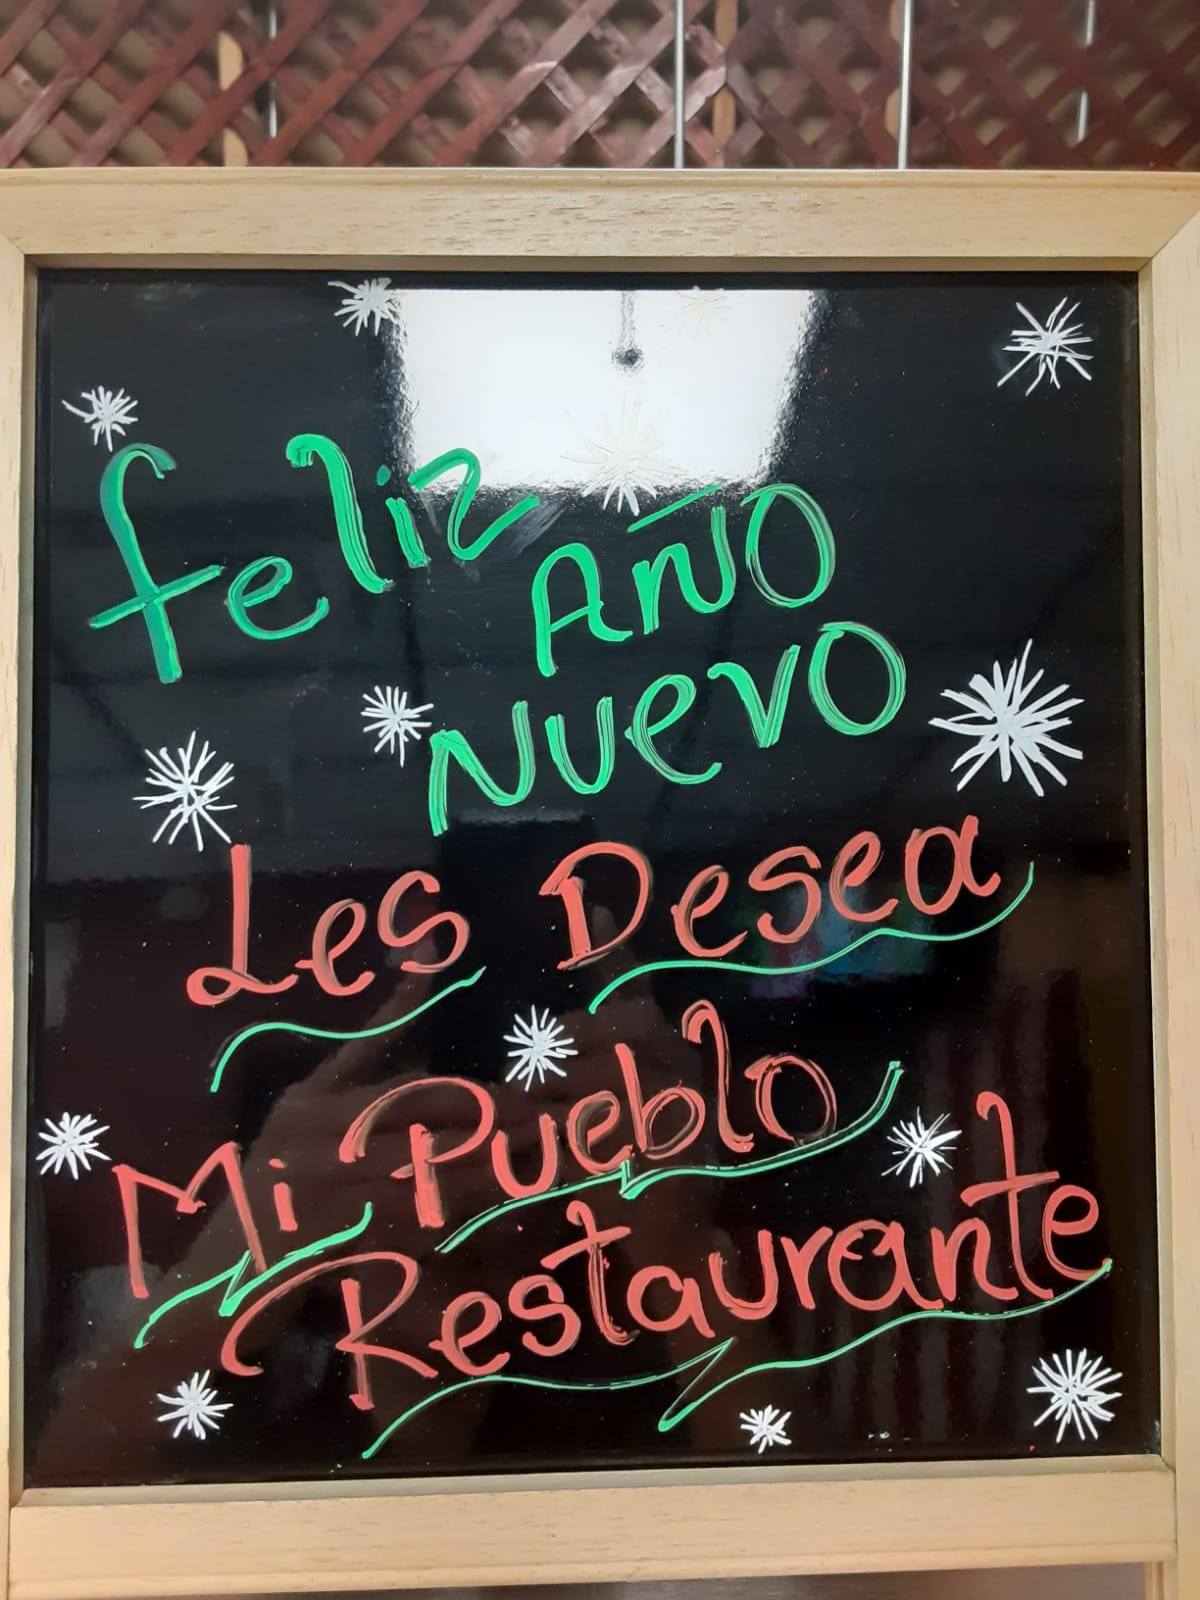 feliz
Año
Nuevo
Les Desea
Mi Pueblo
Restaurante